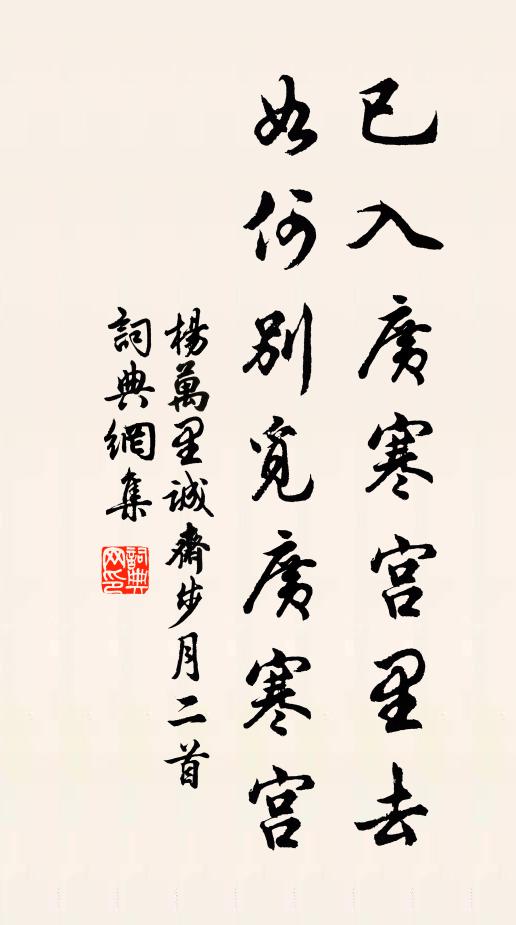 已入廣寒宮里去
如何別覓廣寒宮
楊萬里誠齋步月二首
詞典網集
詞典网印